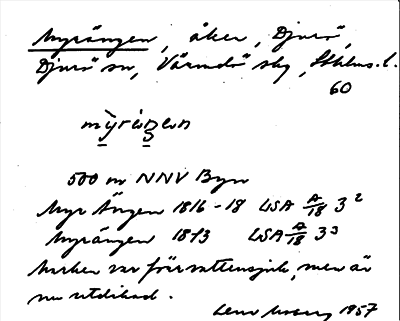 Myrängen, åker, Djurö,
Djurö sn, Värmdö skg, Sthlms. l.
60
mỳräŋen
500 m NNV Byn
Myr Ängen 1816-18 LSA A/18 3²
Myrängen 1873 LSA A/18 3³
Marken var förr vattensjuk, men är
nu utdikad.
1957